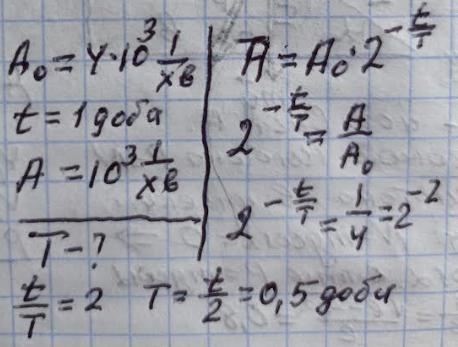 A₀ = 4·10³ 1/хв
t = 1 доба
A = 10³ 1/хв
T - ?
A = A₀·2^(-t/T)
2^(-t/T) = A/A₀
2^(-t/T) = 1/4 = 2^(-2)
t/T = 2 T = t/2 = 0,5 доби